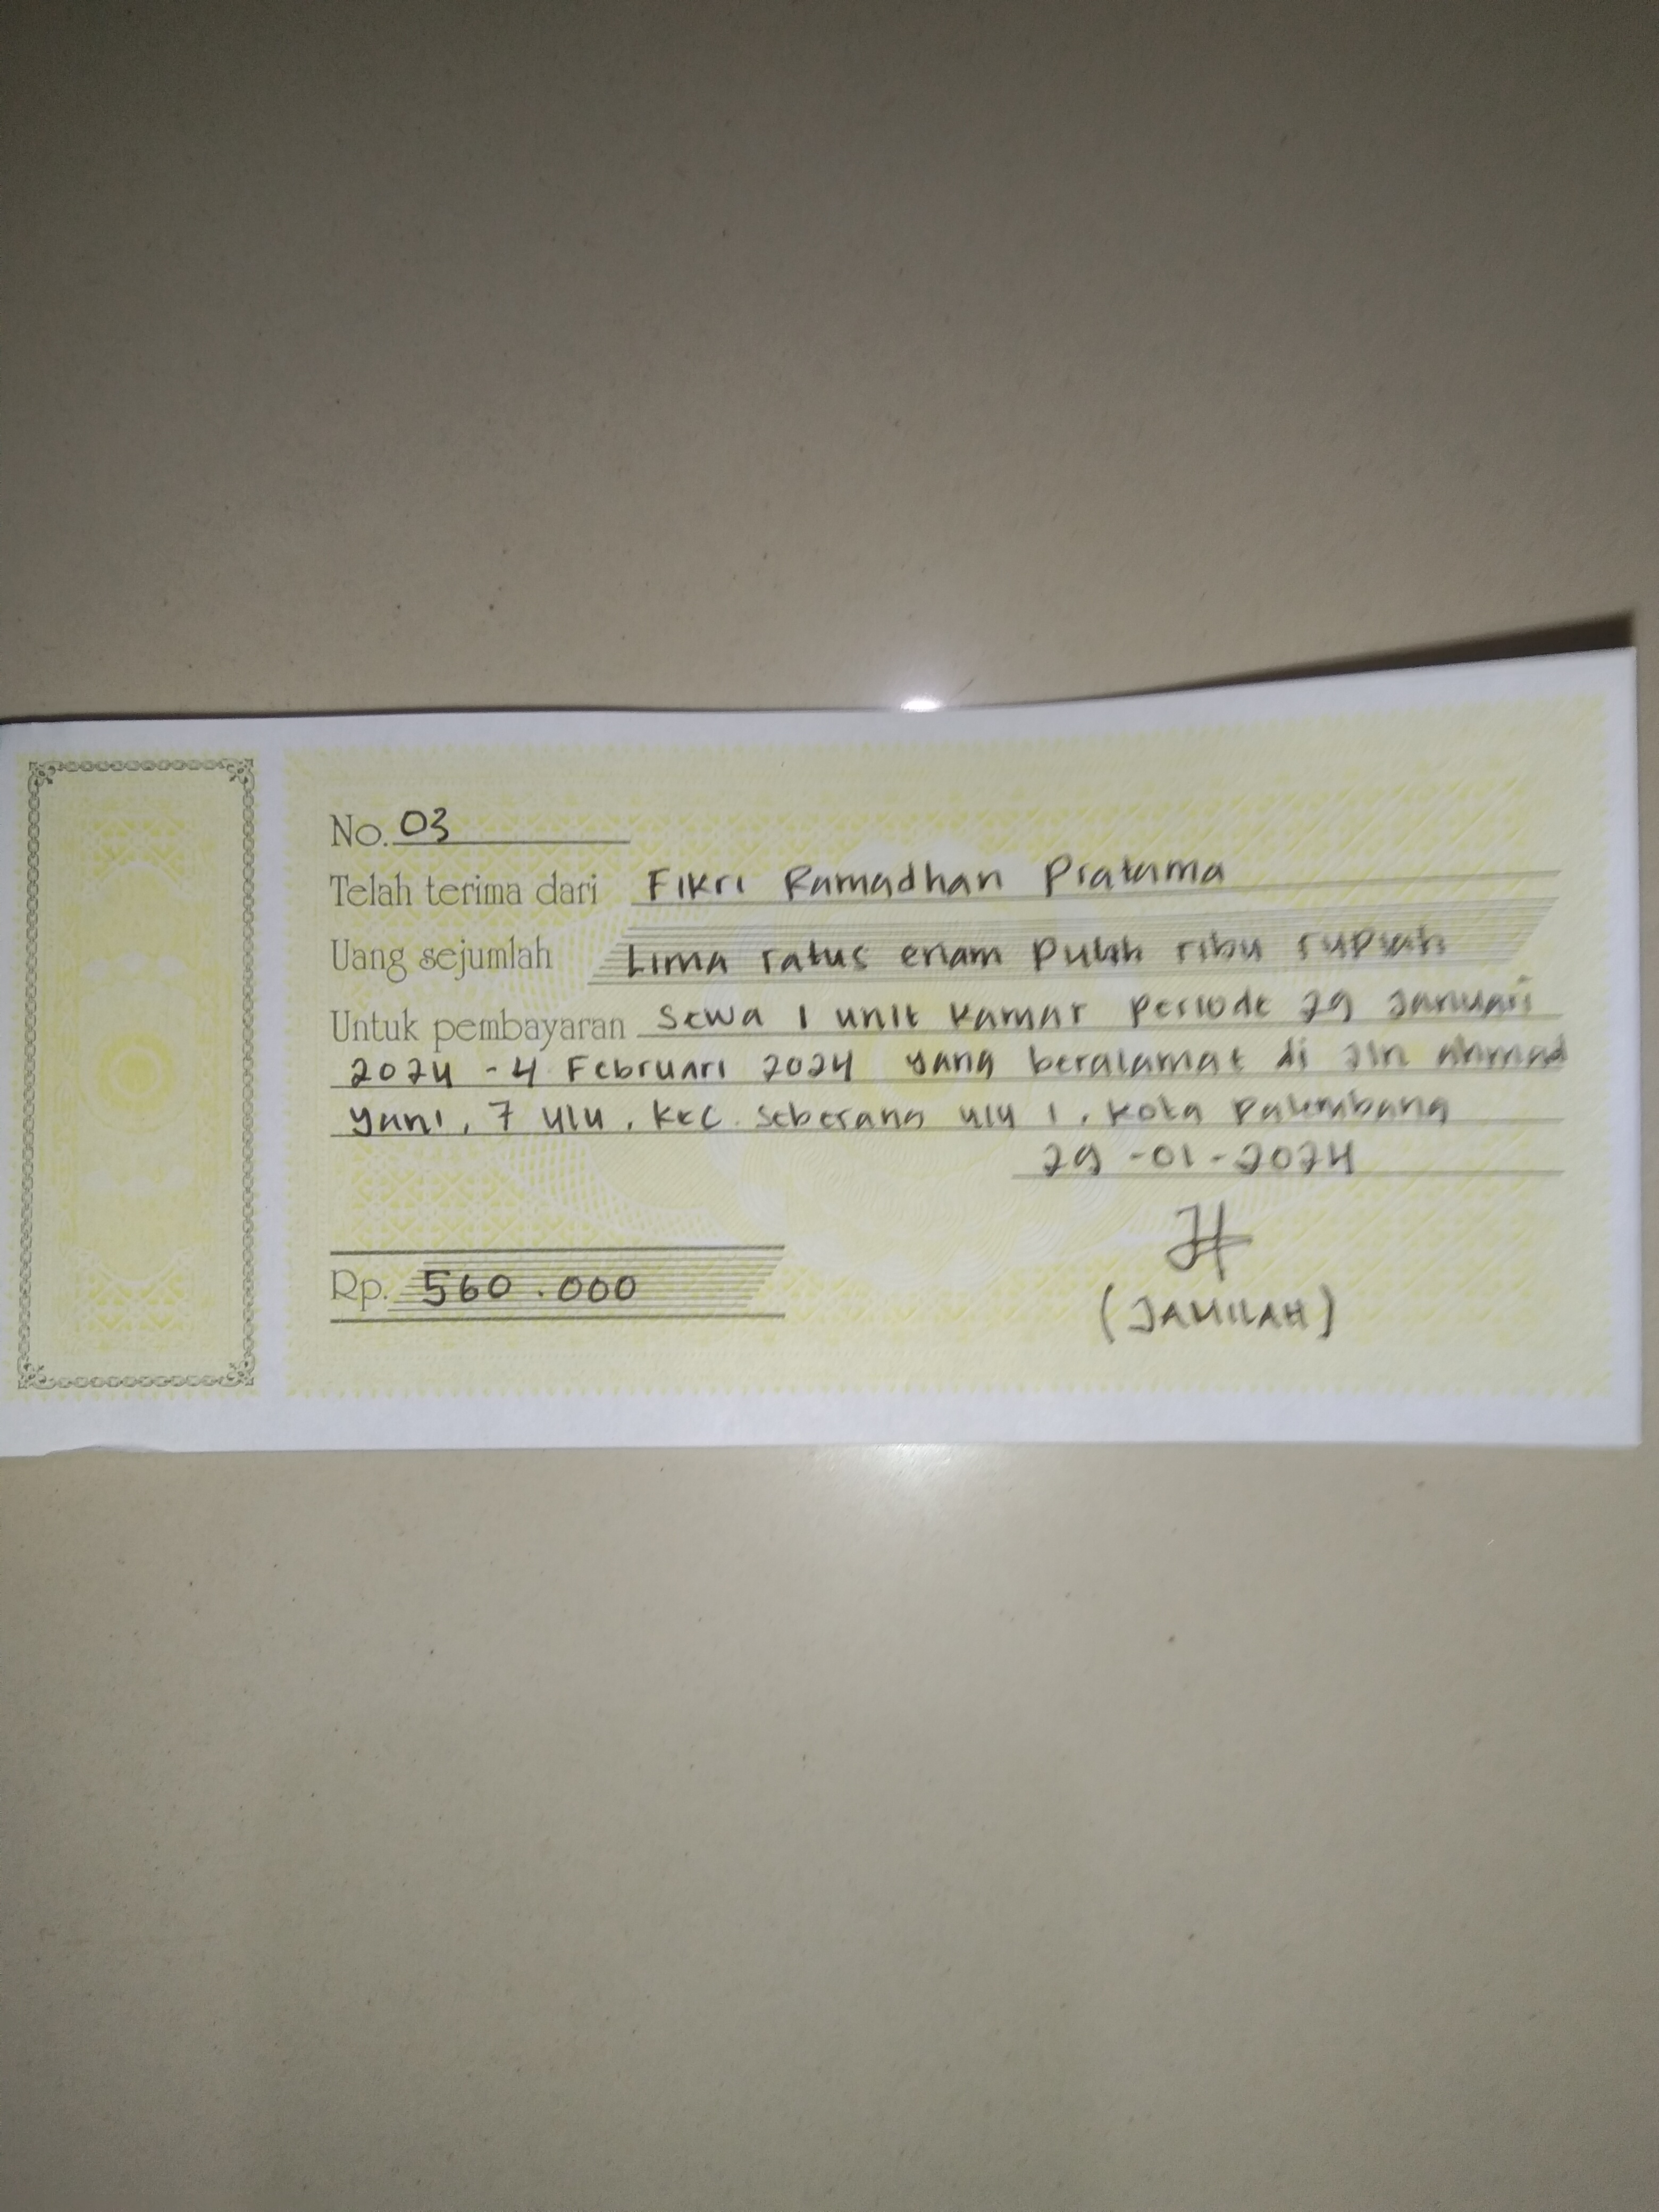 No. 03
Telah terima dari Fikri Ramadhan Pratama
Uang sejumlah Lima ratus enam puluh ribu rupiah
Untuk pembayaran Sewa 1 unit kamar periode 29 Januari
2024 - 4 Februari 2024 yang beralamat di Jln Ahmad
Yani, 7 Ulu, Kec. Seberang Ulu 1, Kota Palembang
29 - 01 - 2024
Rp. 560.000
(JAMILAH)